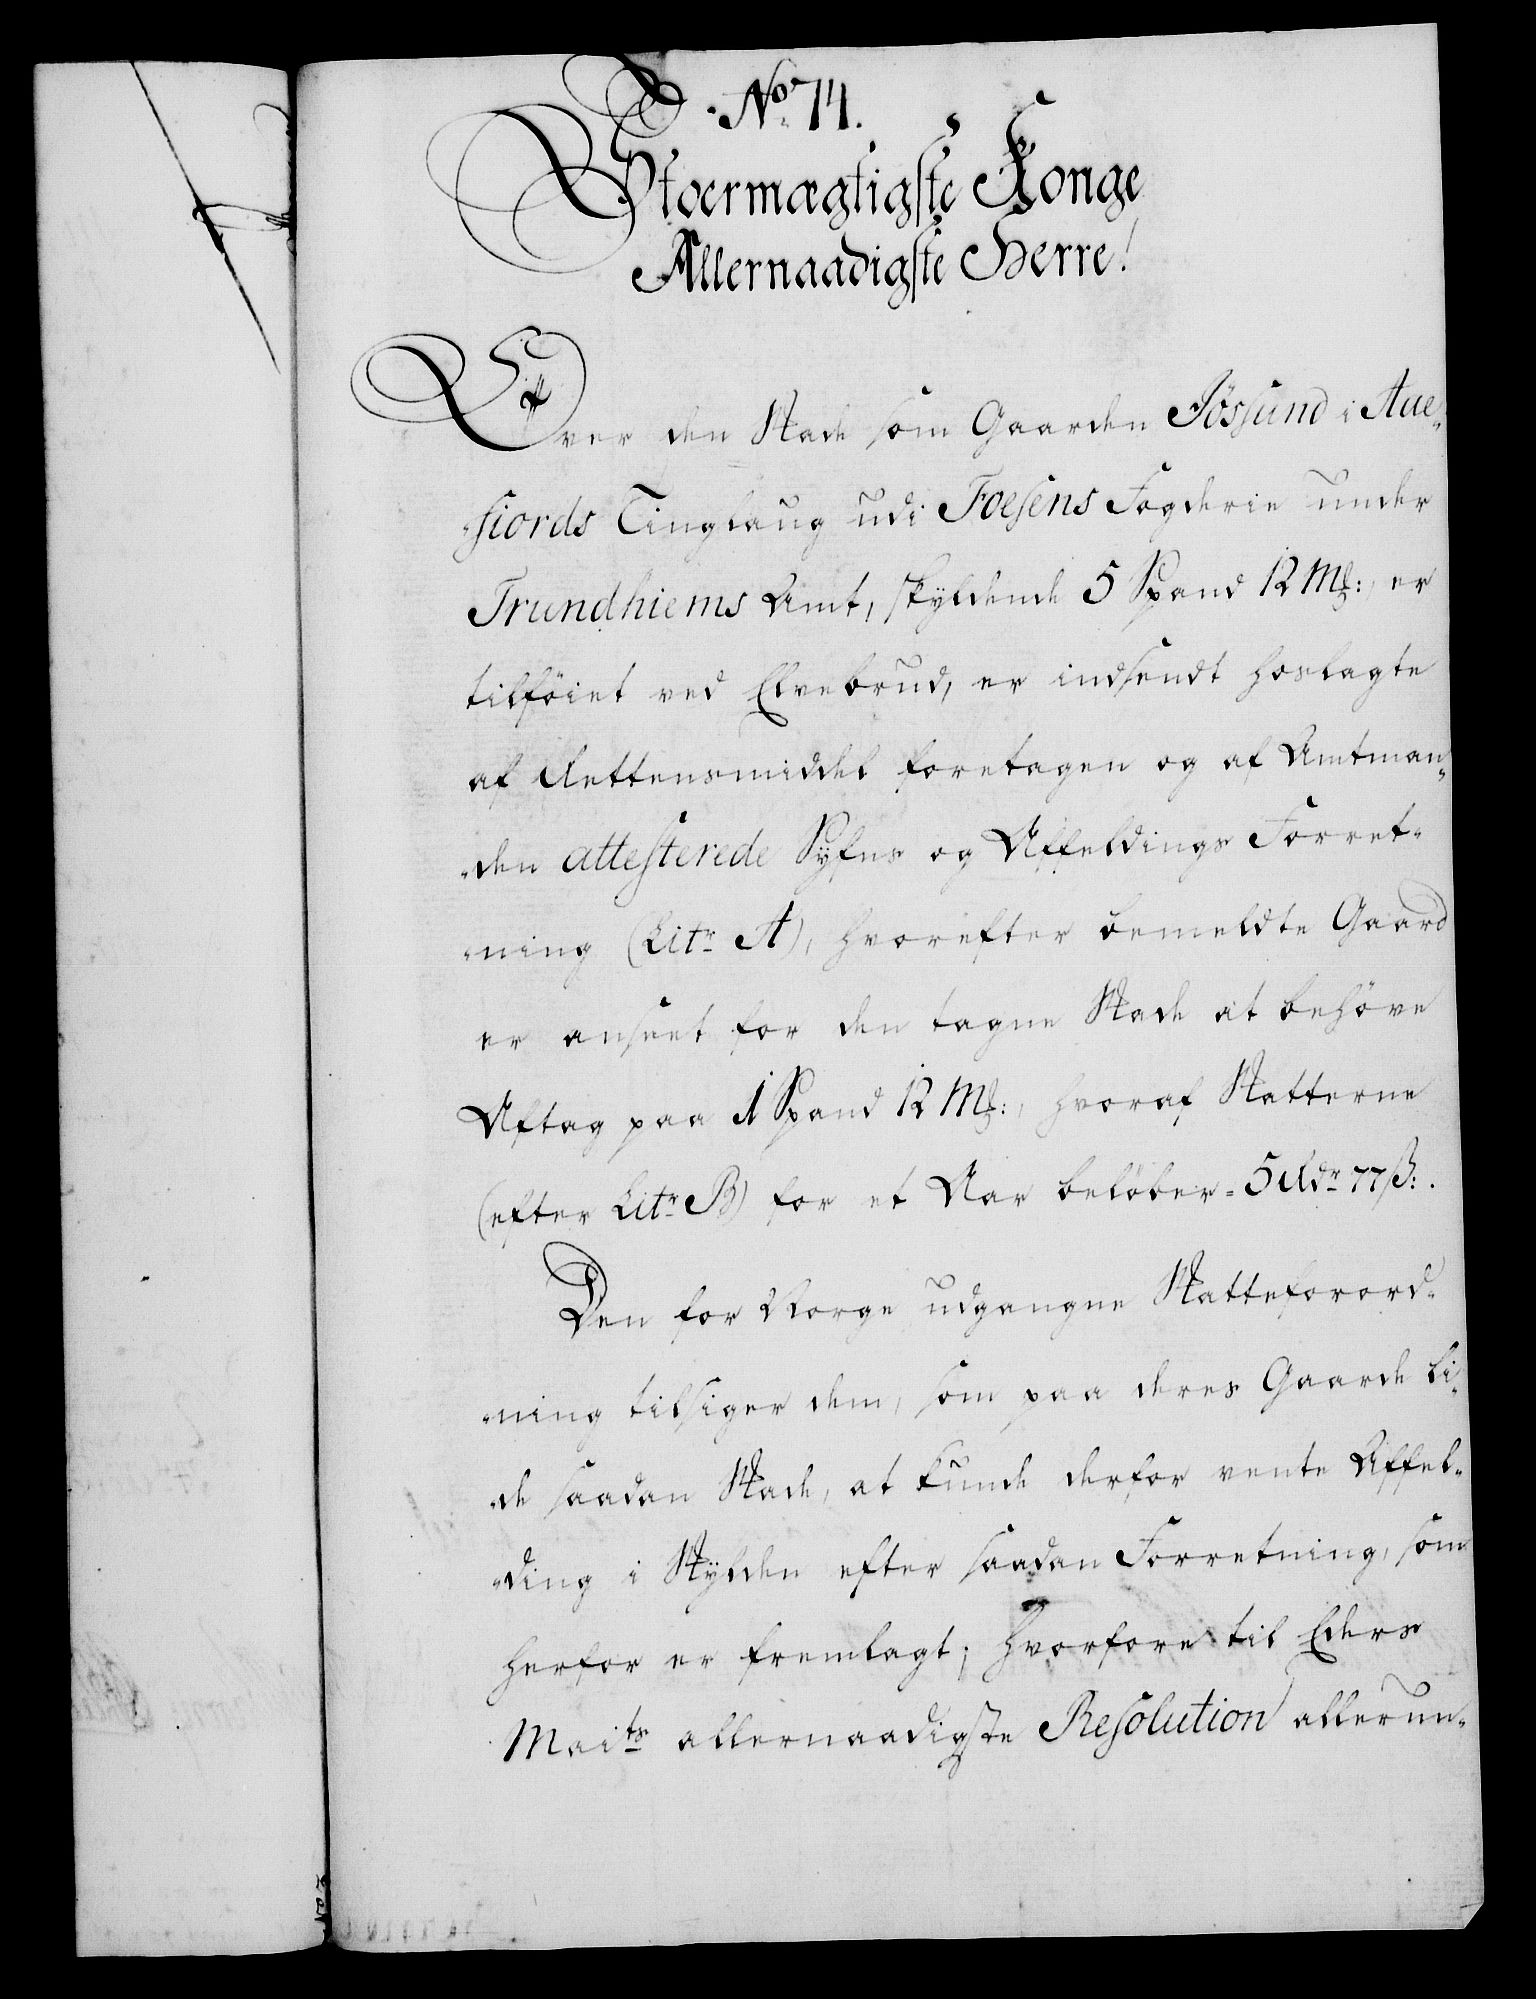 No 74.
Stoermægtigste Konge
Allernaadigste Herre!
Over den Skade som Gaarden Jössund i Aue-
-fiords Tinglaug udi Foesens Fogderie under
Trundhiems Amt, skyldende 5 Spand 12 Mk:, er
tilföiet ved Elvebrud, er indsendt hoslagte
af Rettensmiddel foretagen og af Amtman-
-den attesterede Syfns og Affældings Forret-
-ning (Litr A), hvorefter bemeldte Gaard
er anseet for den tagne Skade at behöve
Aftag paa 1 Spand 12 Mk:, hvoraf Skatterne
(efter Litr B) for et Aar beløber = 5 Rdr 77 ß:.
Den for Norge udgangne Skatteforord-
-ning tilsiger dem, som paa deres Gaarde li-
-de saadan Skade, at kunde derfor vente Affel-
-ding i Skylden efter saadan Forretning, som
herfor er fremlagt; hvorfore til Eders
Maits allernaadigste Resolution allerun-